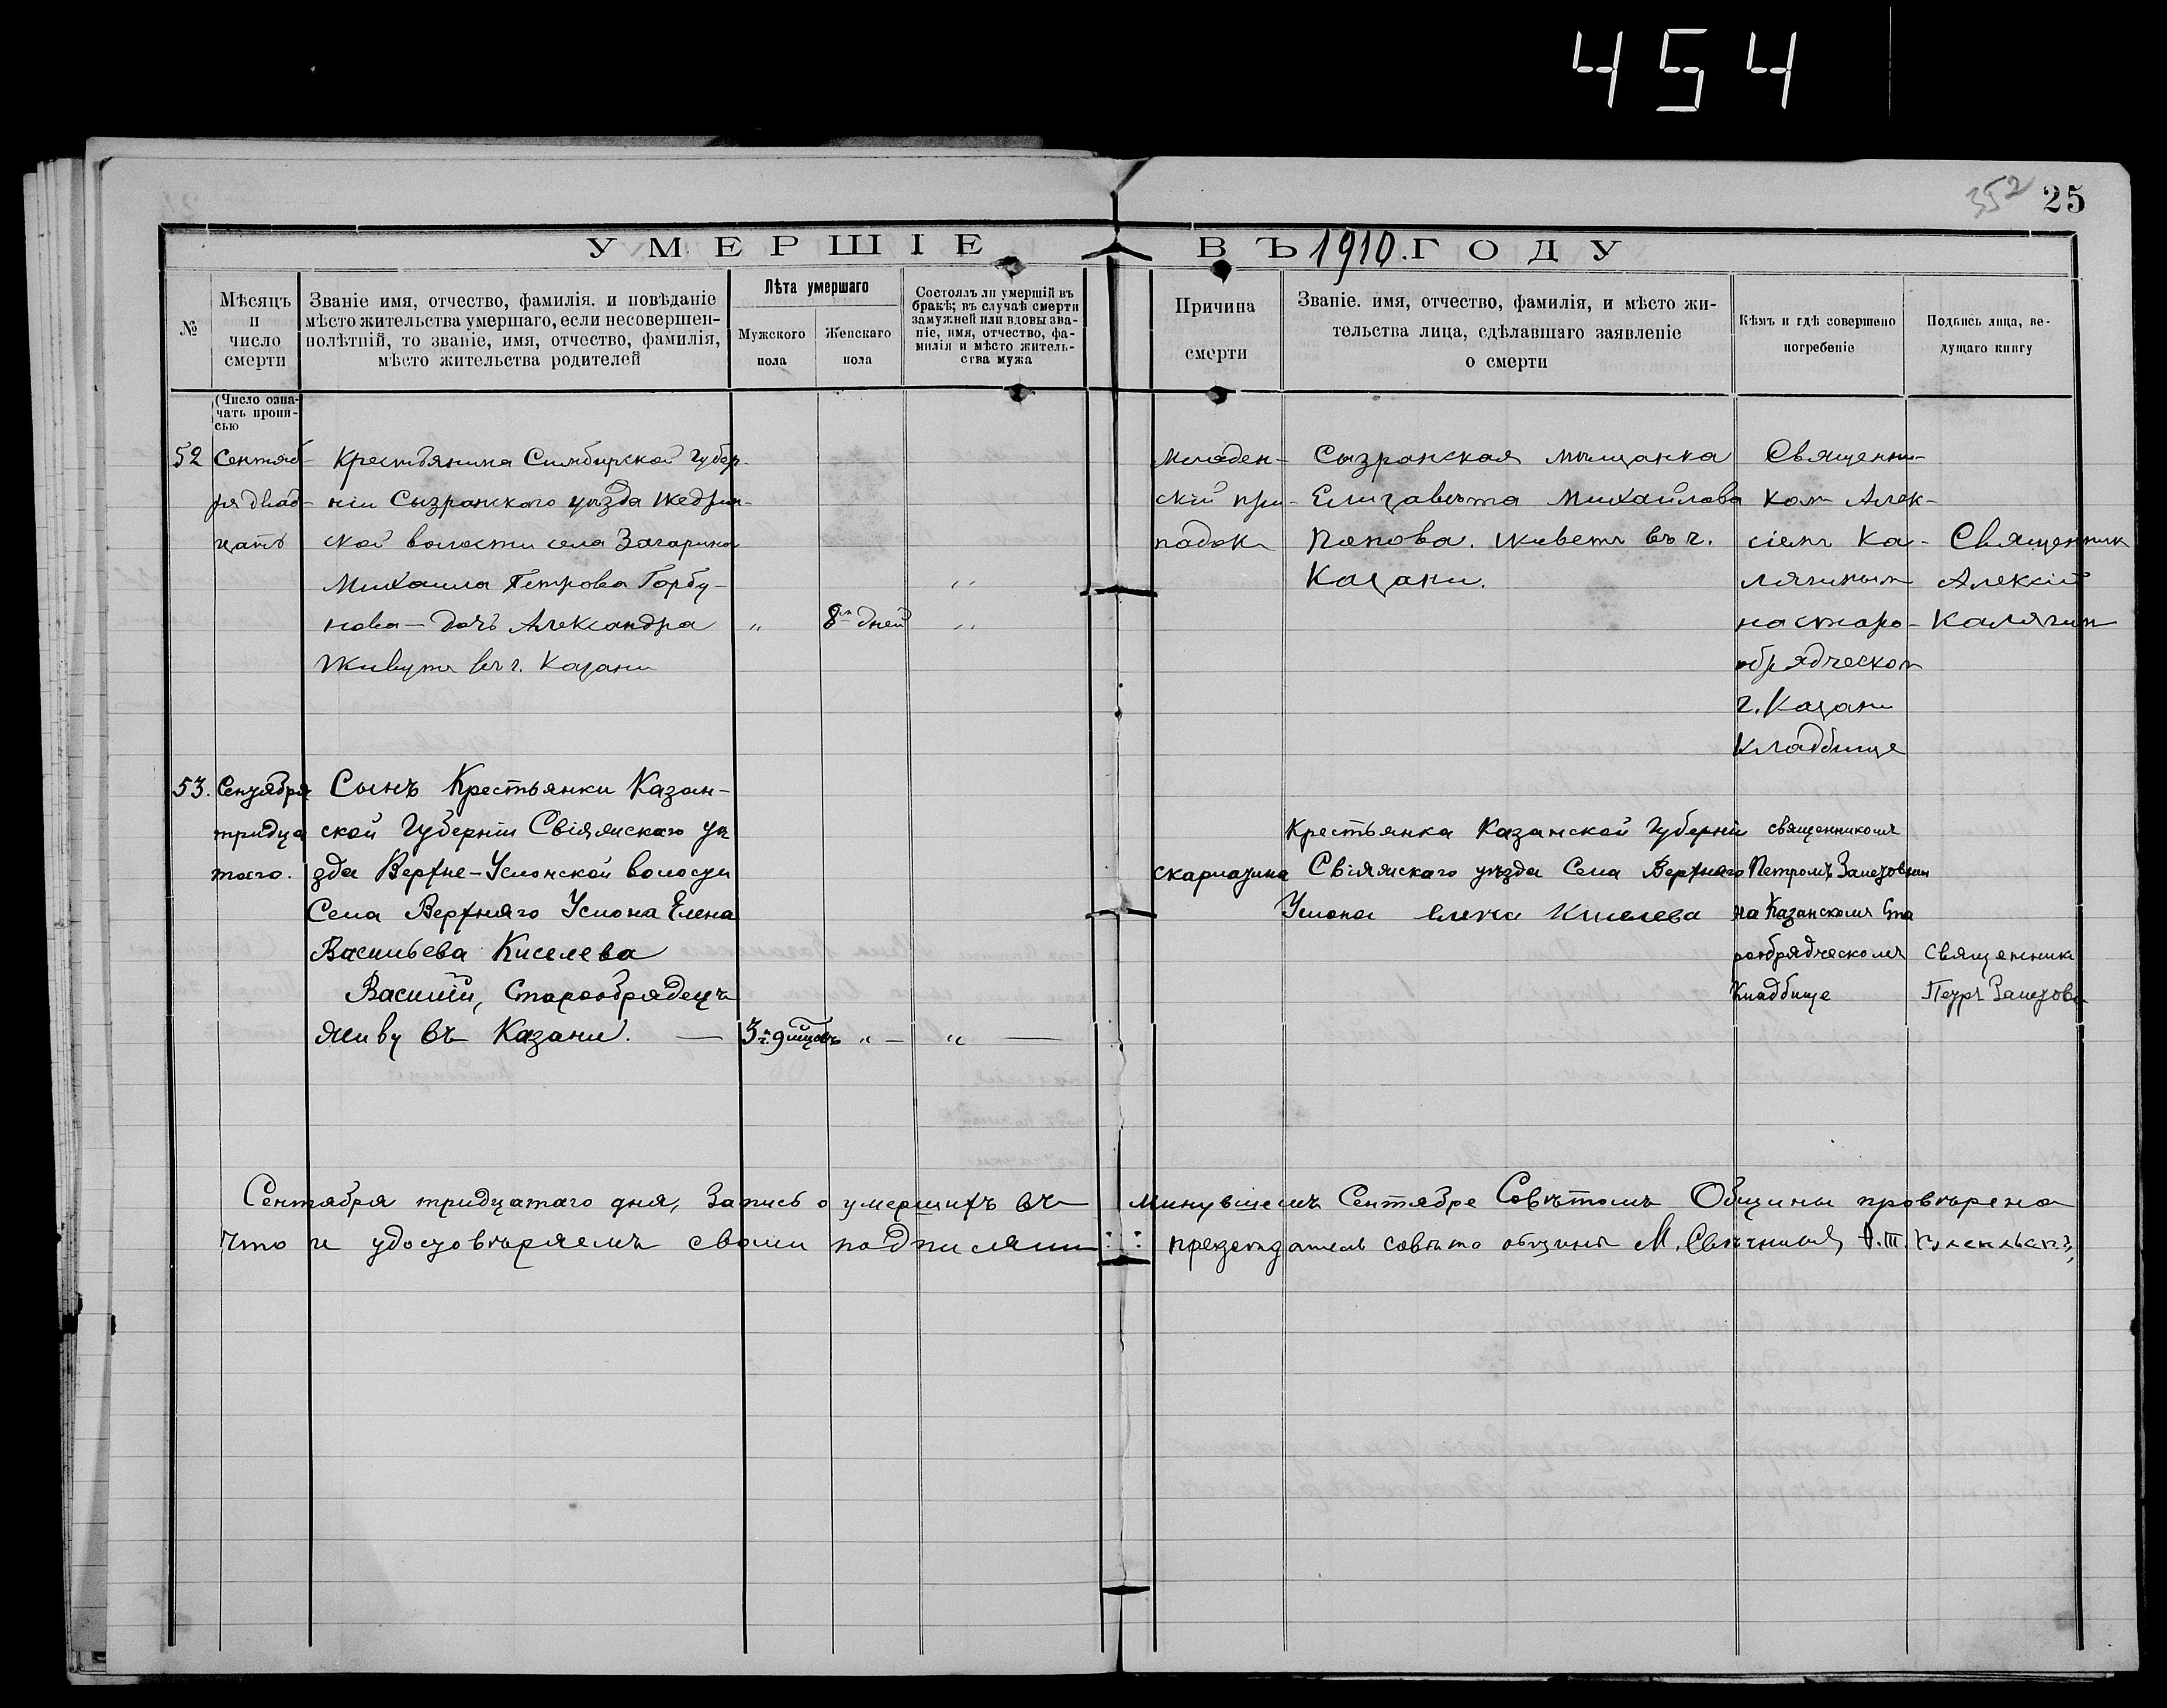 454
352
25
УМЕРШІЕ ВЪ 1910. ГОДУ
№
Мѣсяцъ
и
число
смерти
Званіе имя, отчество, фамилія. и повѣданіе
мѣсто жительства умершаго, если несовершен-
нолѣтній, то званіе, имя, отчество, фамилія,
мѣсто жительства родителей
Лѣта умершаго
Мужского
пола
Женскаго
пола
Состоялъ ли умершій въ
бракѣ; въ случаѣ смерти
замужней или вдовы зва-
ніе, имя, отчество, фа-
милія и мѣсто житель-
ства мужа
Причина
смерти
Званіе. имя, отчество, фамилія, и мѣсто жи-
тельства лица, сдѣлавшаго заявленіе
о смерти
Кѣмъ и гдѣ совершено
погребеніе
Подпись лица, ве-
дущаго книгу
(Число озна-
чать пропи-
сью
52
Сентяб-
ря двад-
цать
Крестьянина Симбирской Губер-
ніи Сызранского уѣзда
ской волости села Загарина
Михаила Петрова Горбу-
нова – дочь Александра
Живутъ въ г. Казани
"
8 дней
"
"
Младен-
скій при-
падокъ
Сызранская мѣщанка
Елизавета Михайлова
Попова. живетъ въ г.
Казани.
Священни-
комъ Алек-
сіемъ Ка-
лягинымъ
на старо-
обрядческом
г. Казани
Кладбище
Священник
Алексій
Калягин
53.
Сентября
тридца
таго.
Сынъ Крестьянки Казан-
ской Губерніи Свіяжскаго уѣ
зда Верхне-Услонской волости
Села Верхняго Услона Елена
Васильева Киселева
Василій, Старообрядецъ
живу въ Казани. —
3 г. 9 мѣцовъ
" —
" —
скарлатина
Крестьянка Казанской Губерніи
Свіяжскаго уѣзда Села Верхняго
Услона Елена Киселева
священникомъ
Петромъ Залетовым
на Казанскомъ Ста
рообрядческомъ
Кладбище
Священникъ
Петръ Залетовъ
Сентября тридцатаго дня, Запись о умершихъ въ минувшемъ Сентябре Совѣтомъ Общины провѣрена
Что и удостовѣряемъ своими подписями: предсѣдатель совѣта общины М.